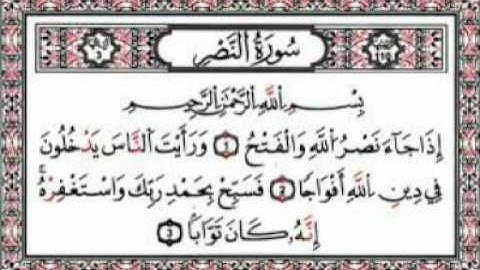 سُورَةُ النَّصْرِ
بِسْمِ اللَّهِ الرَّحْمَٰنِ الرَّحِيمِ
إِذَا جَاءَ نَصْرُ اللَّهِ وَالْفَتْحُ ١ وَرَأَيْتَ النَّاسَ يَدْخُلُونَ
فِي دِينِ اللَّهِ أَفْوَاجًا ٢ فَسَبِّحْ بِحَمْدِ رَبِّكَ وَاسْتَغْفِرْهُ ۚ
إِنَّهُ كَانَ تَوَّابًا ٣